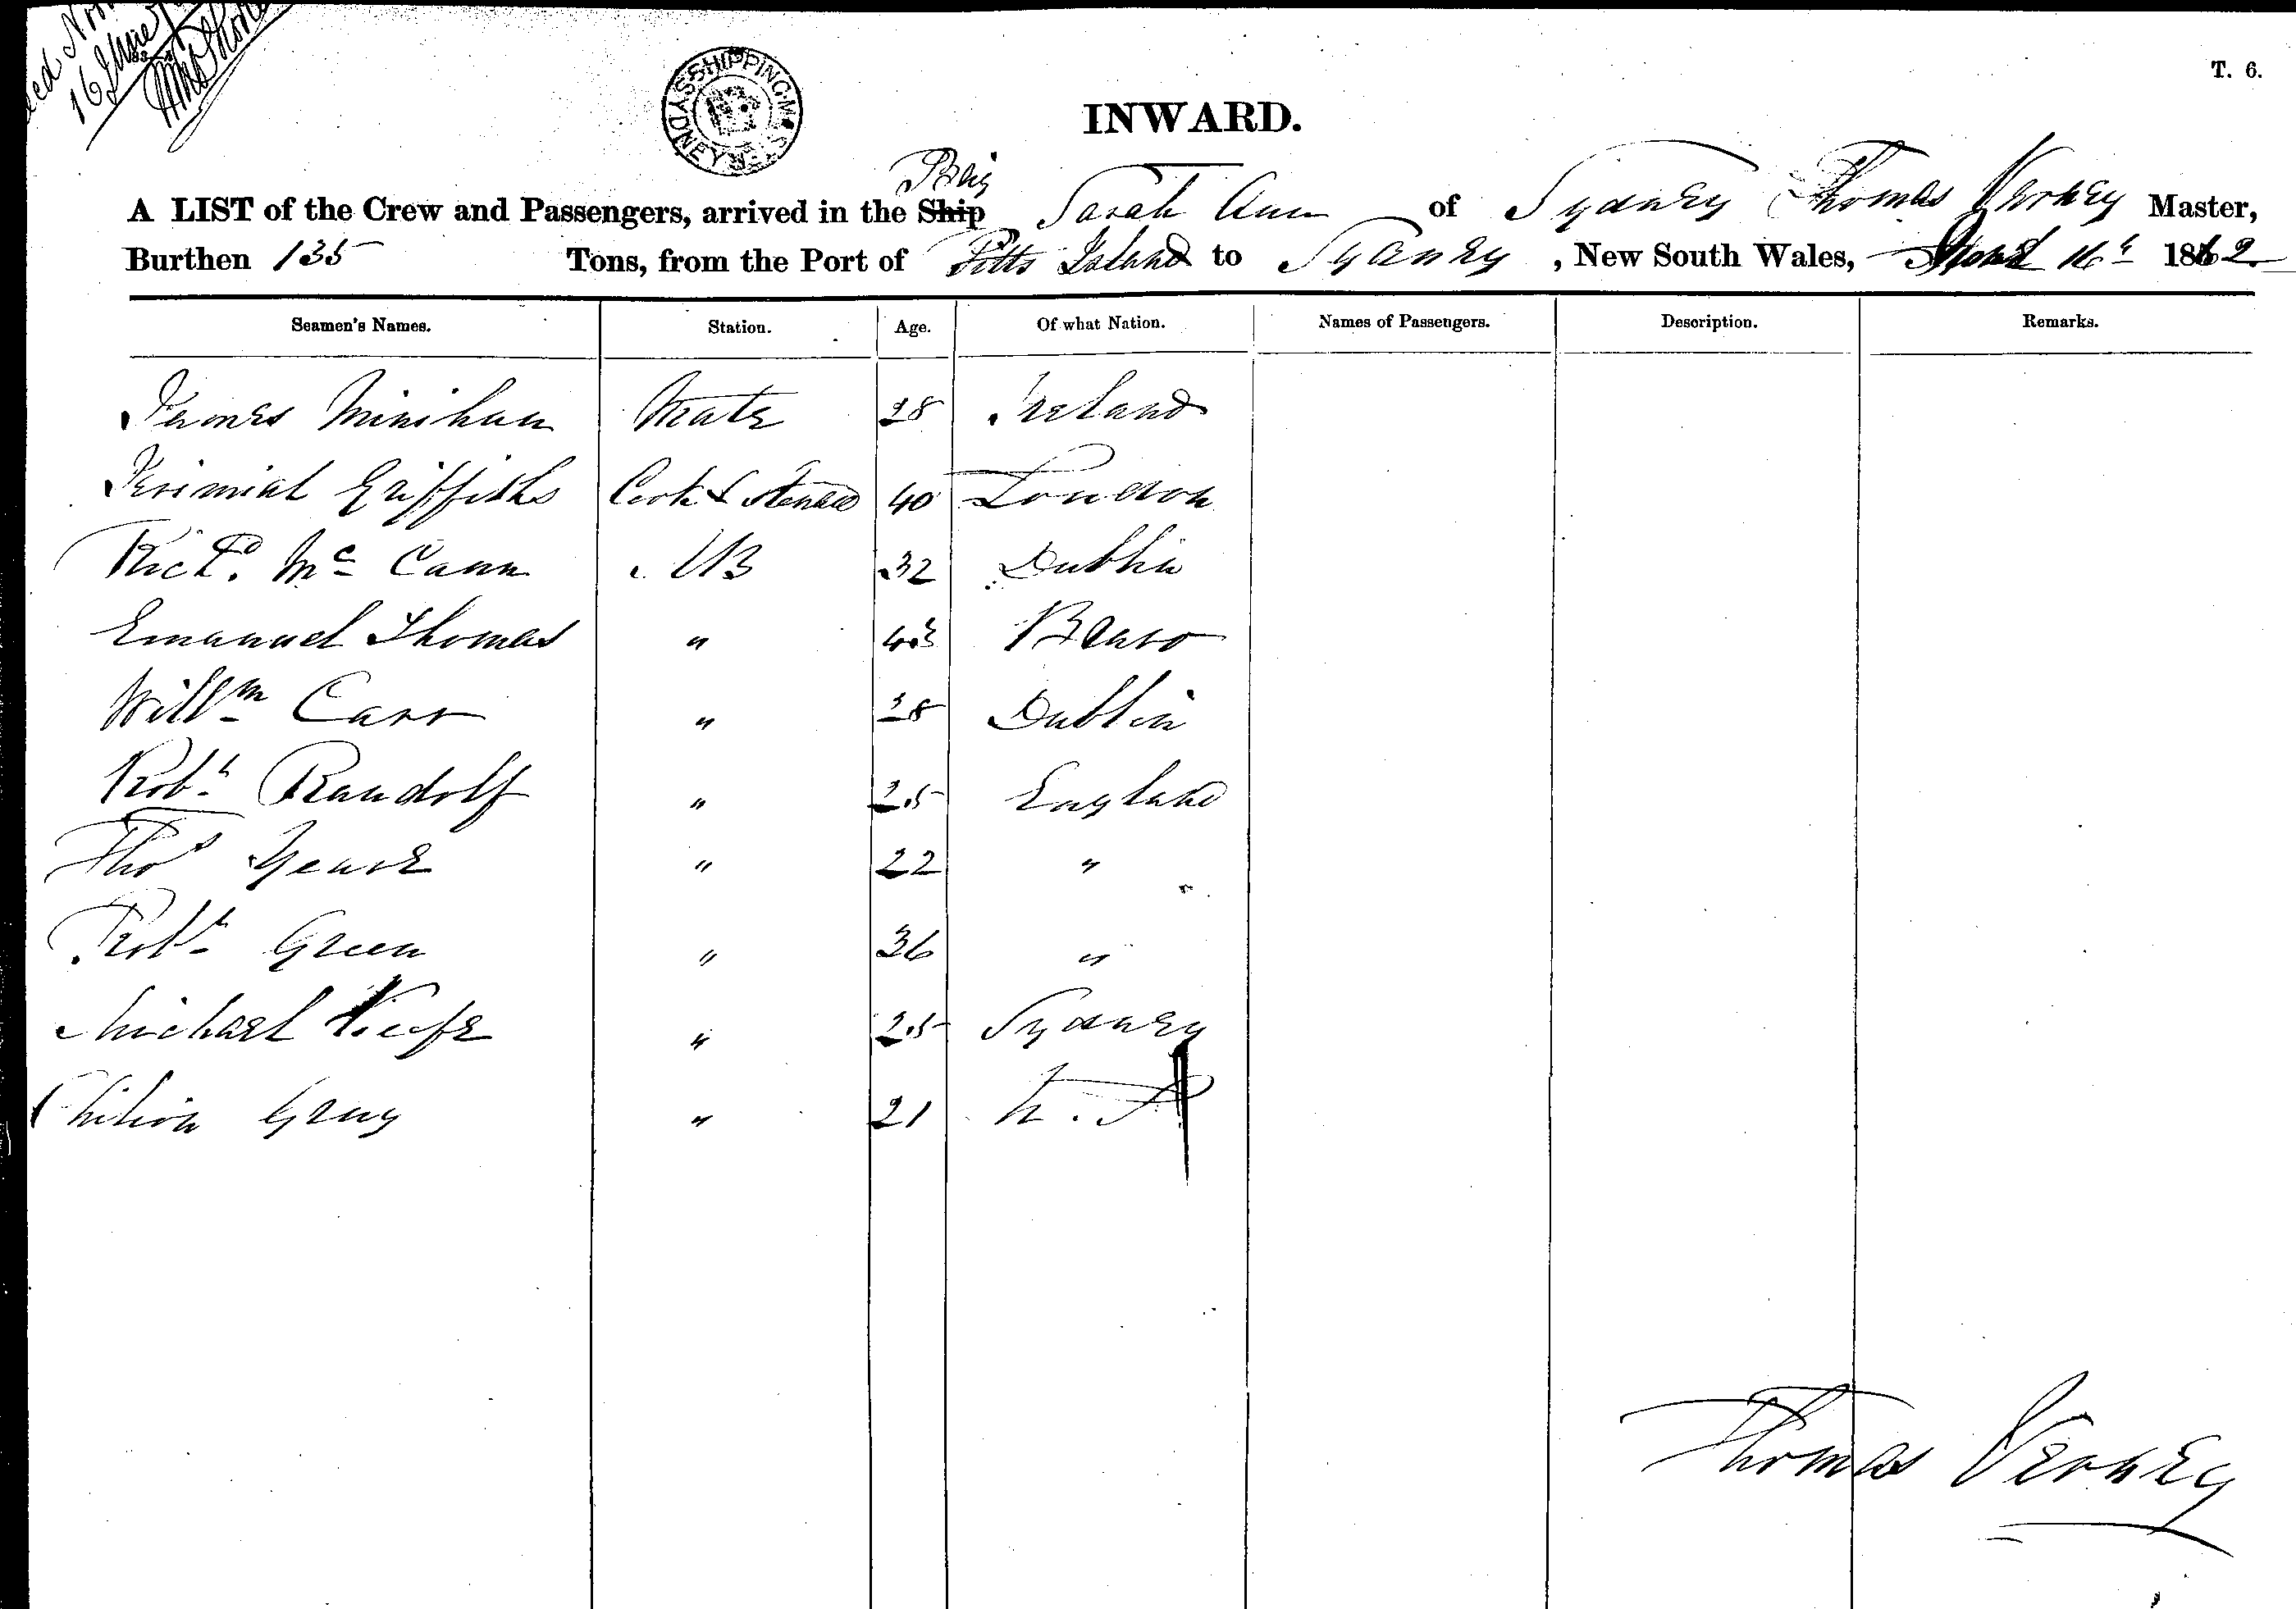 16 June
T. 6.
SHIPPING M
SYDNEY
INWARD.
Brig
A LIST of the Crew and Passengers, arrived in the Ship Sarah Ann of Sydney Thomas Verney Master,
Burthen 135 Tons, from the Port of Pitts Island to Sydney, New South Wales, 16th 1862
Seamen's Names. Station. Age. Of what Nation. Names of Passengers. Description. Remarks.
James Minihan Mate 28 Ireland
Jerimiah Griffiths Cook & Steward 40 London
Richd. Mc Cann AB 32 Dublin
Emanuel Thomas " 43
Willm Carr " 28 Dublin
Robt Randolf " 25 England
Thos " 22 "
Robt Green " 36 "
Michael Keefe " 25 Sydney
Gray " 21
Thomas Verney